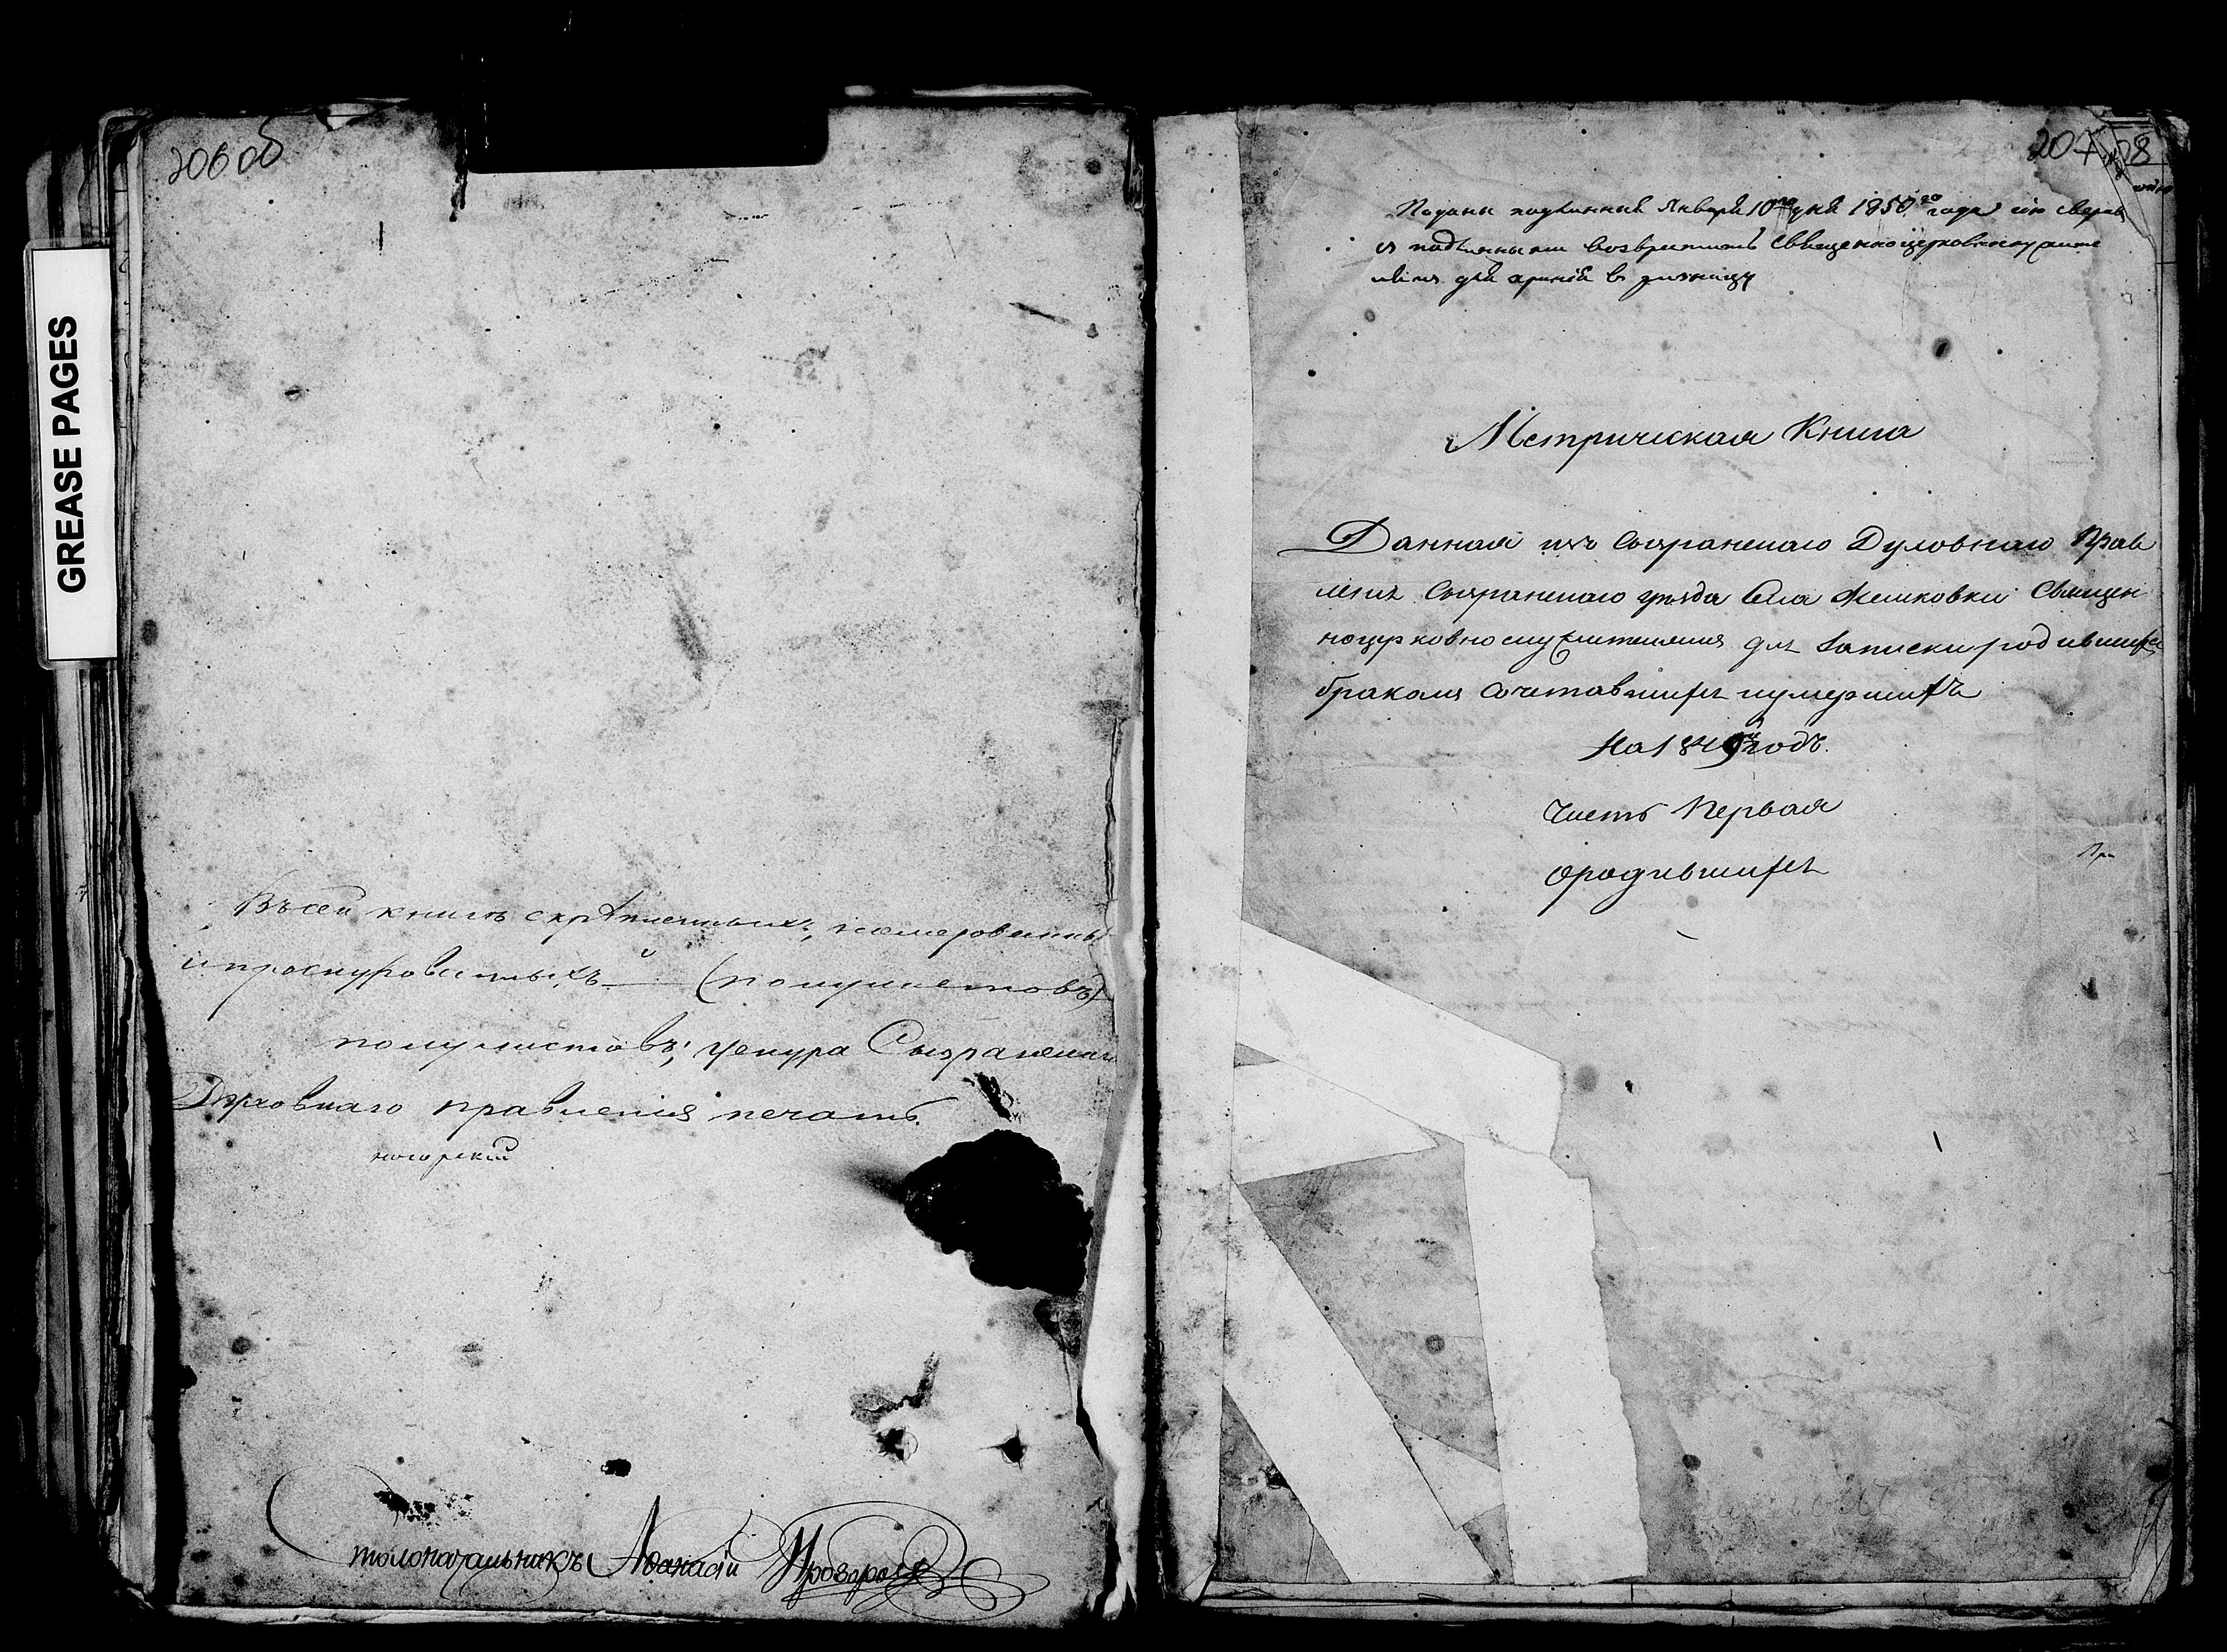 GREASE PAGES
206 об
Въ сей книгѣ скрѣпленныхъ, номерованны
и прошнурованныхъ (полулистовъ)
полулистовъ; у шнура Сызранскаго
Духовнаго правленія печать.
Столоначальникъ Афанасій Прозоровъ
207
Поданы Января 10го дня 1850го года сію
съ возвратить священноцерковнослужите
лямъ для храненія въ ризницу
Метрическая Книга
Данная изъ Сызранскаго Духовнаго Прав
ленія Сызранскаго уѣзда села Священ
ноцерковнослужителямъ для записки родившихся
бракомъ сочетавшихся и умершихъ
На 1849й годъ.
Часть Первая
о родившихся